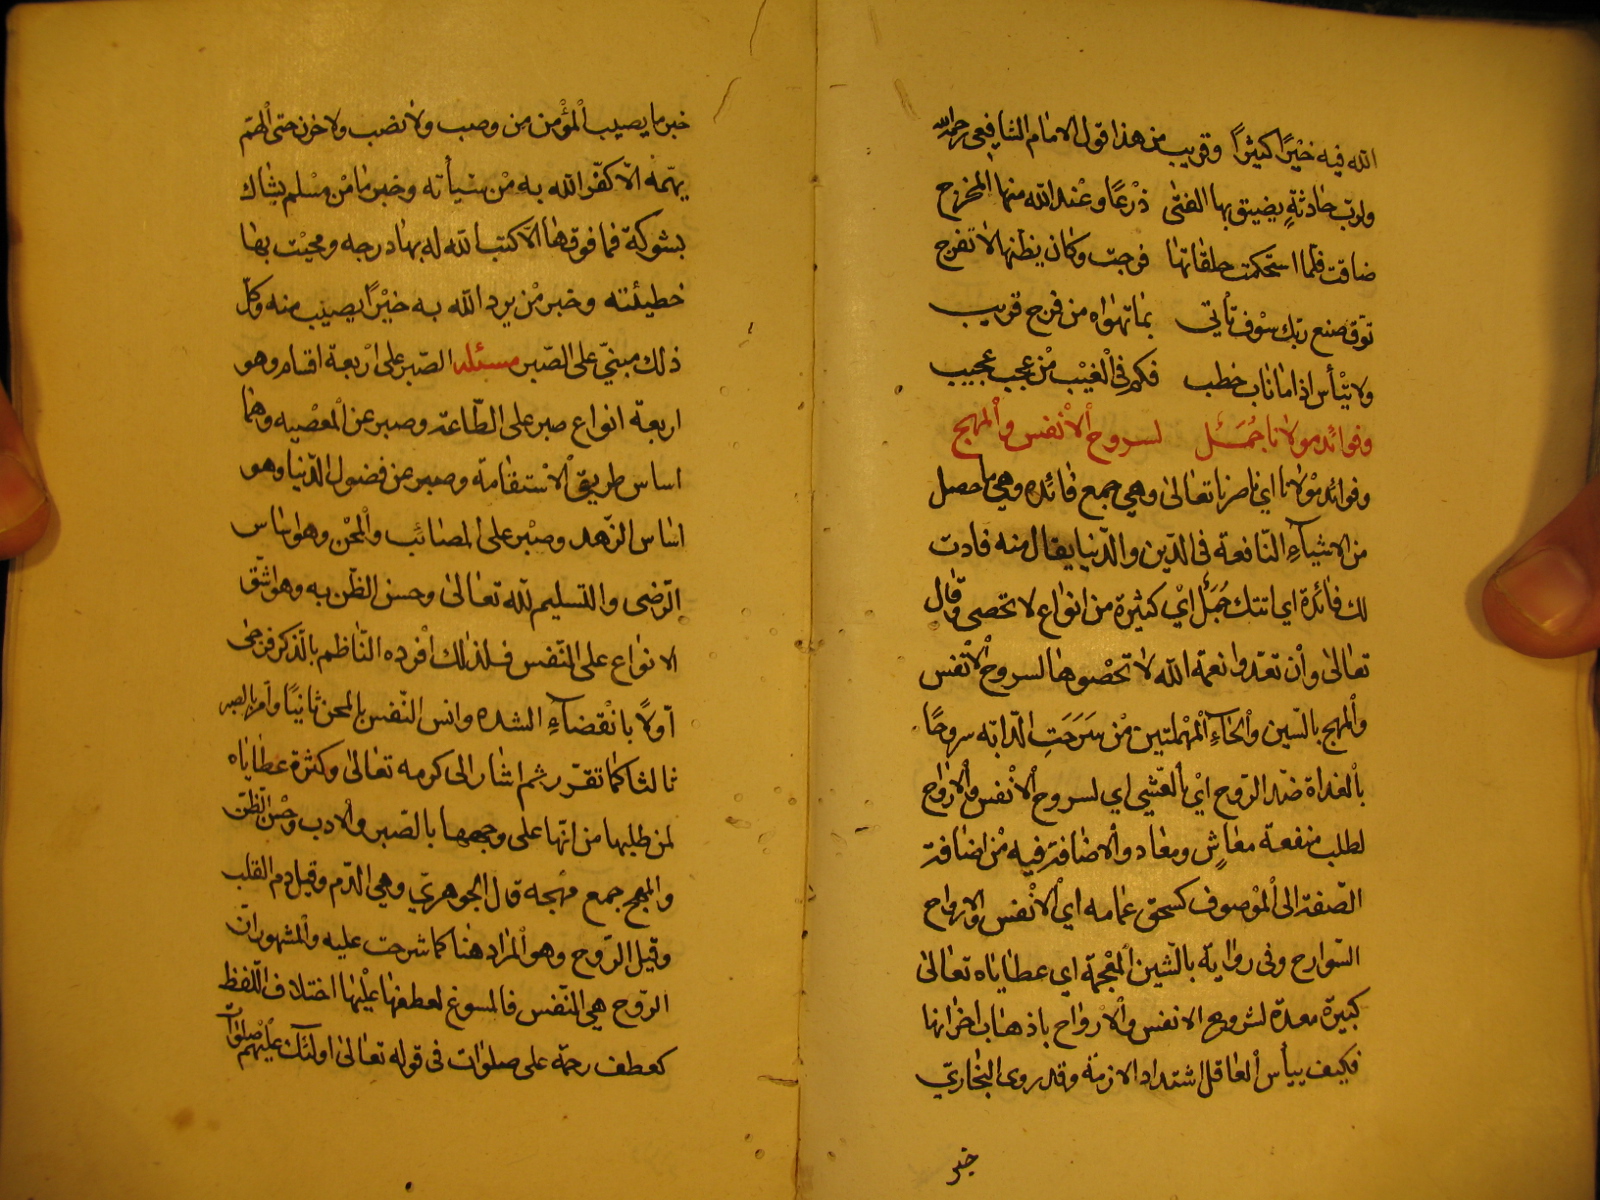 الله فيه خيْرًا كثيرًا وقريب من هذا قول الامام الشافعي رحمه الله
ولرب حادثةٍ يضيق بها الفتى ذرْعًا وعند الله منها المخرج
ضاقت فلما استحكمت حلقاتها فرجت وكان يظنها لا تفرج
توق صنع ربك سوْف تأتي بما تهواه من فرج قريب
ولا تيْأس اذا ما ناب خطب فكم في الْغيْب منْ عجب عجيب
وفوائد مولانا جُمَل لسروح الْانْفس والْمهج
وفوائد موْلانا اي ناصرنا تعالى وهي جمع فائده وهي ما حصل
من الاشيآءِ النّافعة في الدّين والدّنيا يقال منه فادت
لك فائدة اي اتتك جُمَل ايْ كثيرة من انواع لا تحصى وقال
تعالى وانْ تعدوا نعمة الله لا تحْصوها لسروح الْانْفس
والْمهج بالسّين والْحآءِ الْمهْملتين منْ سَرَحَتِ الدّابه سروحًا
بالْغداة ضدّ الرّوح ايْ بالْعشي اي لسروح الْانْفس والْارْواح
لطلب منفعة معاشٍ ومعاد والاضافة فيه منْ اضافة
الصّفة الى الْموْصوف كسحق عمامه اي الْانْفس والارواح
السّوارح وفي رواية بالشّين الْمعْجمة اي عطاياه تعالى
كبيرة معدة لشروح الانفس والْارْواح باذهاب احزانها
فكيف ييأس الْعاقل اشتداد الازمة وقد روى البخاريّ
خبر
خبر ما يصيب الْمؤْمن من وصب ولا نصب ولا حزن حتى الْهمّ
يهمّه الّا كفّر الله به منْ سيأته وخبر ما منْ مسْلم يشاك
بشوكة فما فوقها الّا كتب الله له بها درجه ومحيْت بها
خطيئته وخبر منْ يرد الله به خيْرًا يصيب منه وكلّ
ذلك مبنيّ على الصّبر مسئله الصّبر على ارْبعة اقسام وهو
اربعة انواع صبر على الطّاعة وصبر عن الْمعْصيه وهما
اساس طريق الْاسْتقامة وصبر عن فضول الدّنيا وهو
اساس الزّهد وصبْر على المصائب والْمحنْ وهو اساس
الرّضى والتسليم لله تعالى وحسن الظّن به وهو اشّق
الانواع على النّفس فلذلك افْرده النّاظم بالذّكر فرجى
اوّلًا بانْقضآءِ الشده وانس النّفس بالمحن ثانيًا وامر بالصبر
ثالثا كما تقرّر ثم اشار الى كرمه تعالى وكثرة عطاياه
لمن طلبها من اتّها على وجهها بالصّبر والْادب وحسْن الظّنّ
والمهج جمع مهْجه قال الجوهريّ وهي الدّم وقيل دم القلب
وقيل الرّوح وهو الْمراد هنا كما شرحت عليه والْمشهور انّ
الرّوح هي النّفس فالمسوغ لعطفها عليْها اختلاف اللّفظ
كعطف رحمة على صلوات في قوله تعالى اولئك عليْهم صلوات